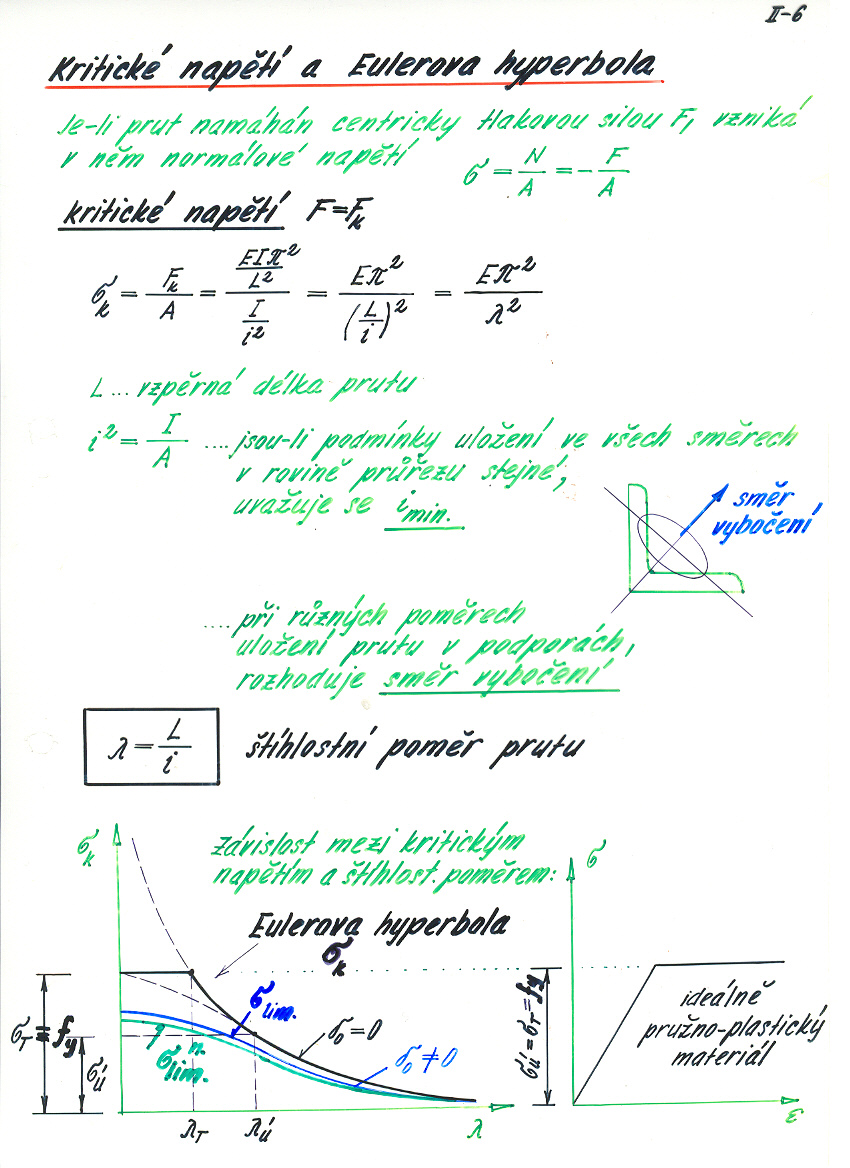 II-6
Kritické napětí a Eulerova hyperbola
Je-li prut namáhán centricky tlakovou silou F, vzniká
v něm normálové napětí σ = N/A = - F/A
kritické napětí F=Fk
σk = Fk/A = (EIπ²/L²)/(I/i²) = Eπ²/(L/i)² = Eπ²/λ²
L ... vzpěrná délka prutu
i² = I/A .... jsou-li podmínky uložení ve všech směrech
v rovině průřezu stejné,
uvažuje se i min.
směr
vybočení
.... při různých poměrech
uložení prutu v podporách,
rozhoduje směr vybočení
λ = L/i štíhlostní poměr prutu
σk
Závislost mezi kritickým
napětím a štíhlost. poměrem:
σ
Eulerova hyperbola
σk
σT = fy
σú
σlim.
σlim.n.
δ0=0
δ0≠0
λT
λú
λ
σú = σT = fy
ideálně
pružno-plastický
materiál
ε